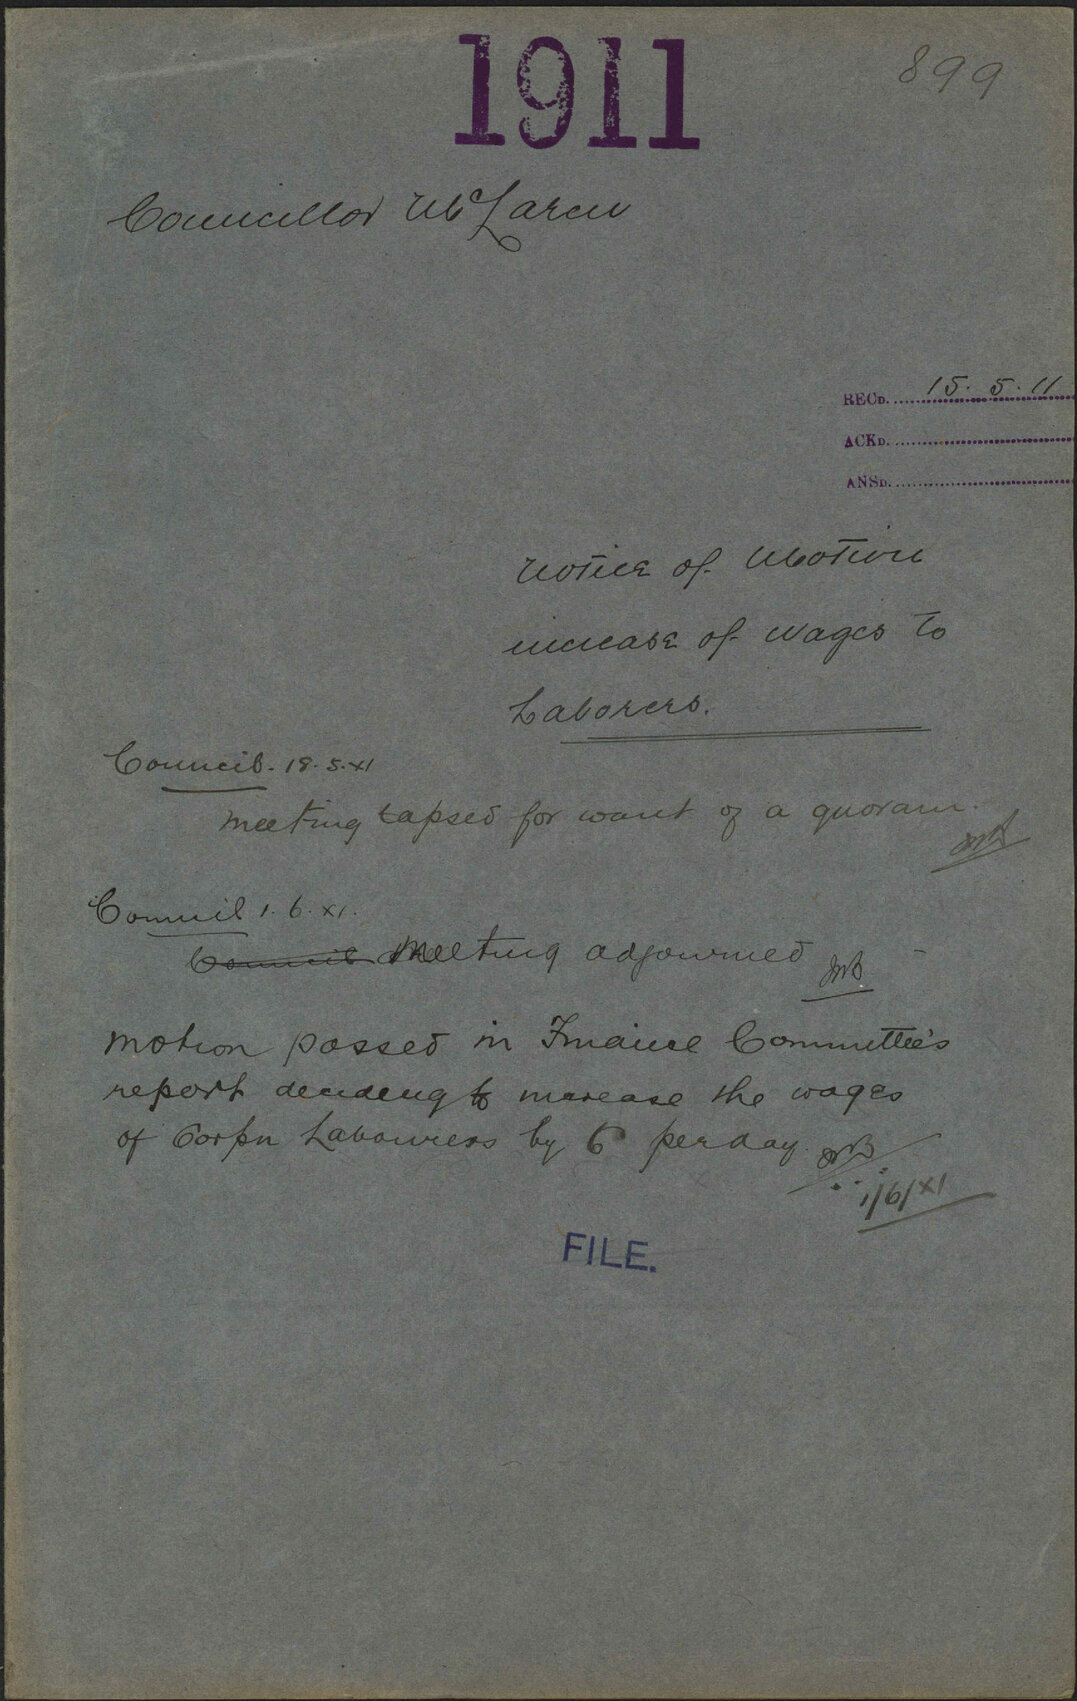 1911
899
Councillor McLaren
RECD. 15.5.11
ACKD.
ANSD.
Notice of Motion
increase of wages to
Laborers.
Council. 18.5.XI
Meeting lapsed for want of a quorum.
Council 1.6.XI.
Council Meeting adjourned
Motion passed in Finance Committee's
report deciding to increase the wages
of Corpn Labourers by 6 per day
1/6/XI
FILE.